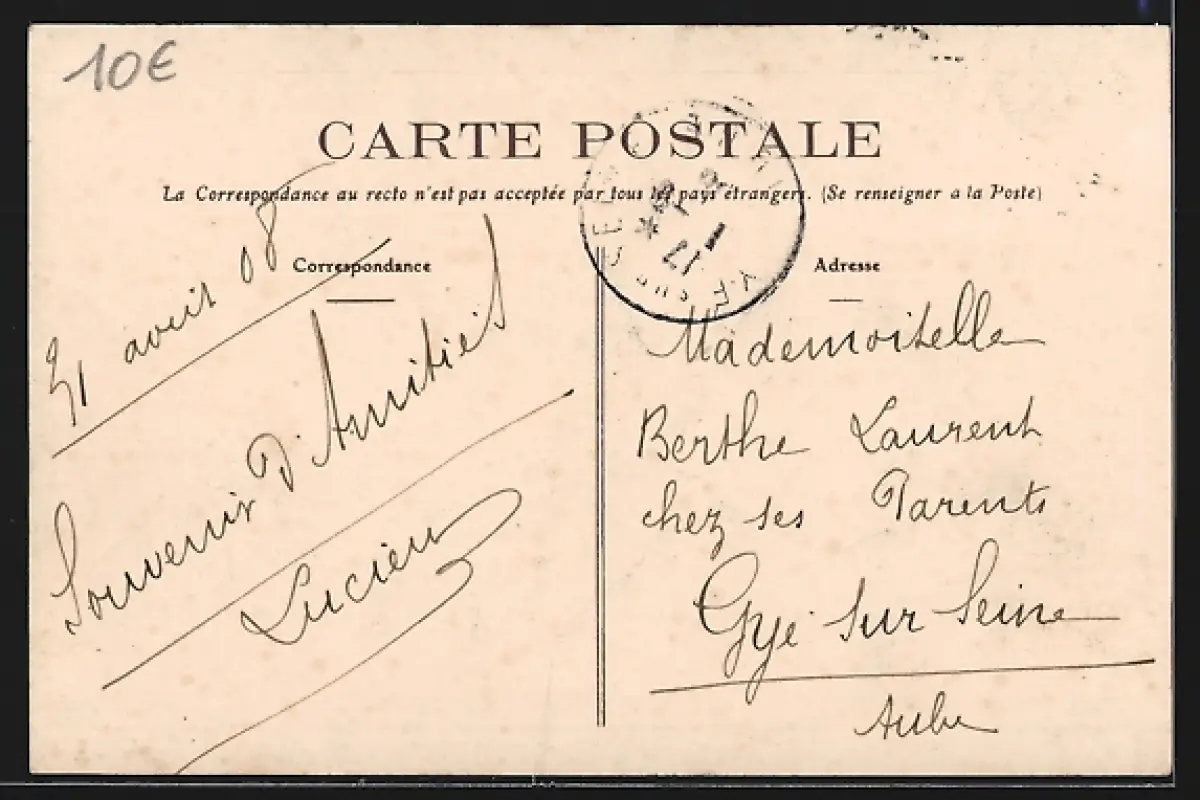 10€
CARTE POSTALE
La Correspondance au recto n'est pas acceptée par tous les pays étrangers. (Se renseigner a la Poste)
Correspondance
avril 08
Souvenir D'Amitiés
Lucien
Adresse
Mademoiselle
Berthe Laurent
chez ses Parents
Gyé sur Seine
Aube